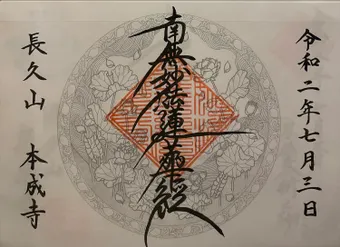 令和二年七月三日
南無妙法蓮華經
長久山 本成寺